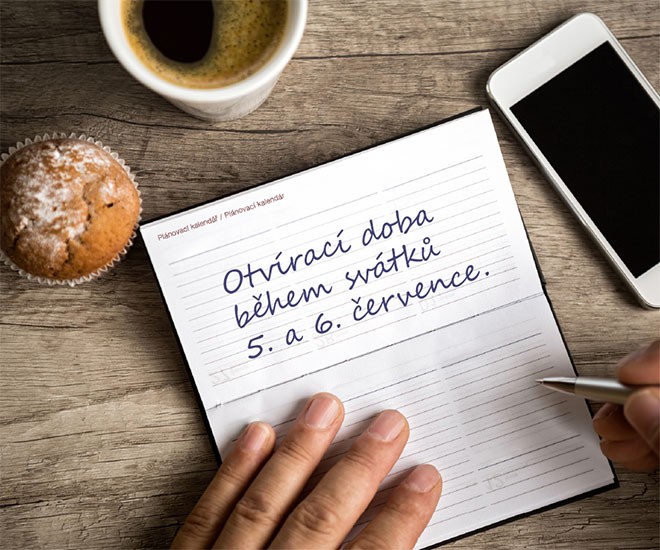 Plánovací kalendář / Plánovací kalendár
Otvírací doba
během svátků
5. a 6. července.